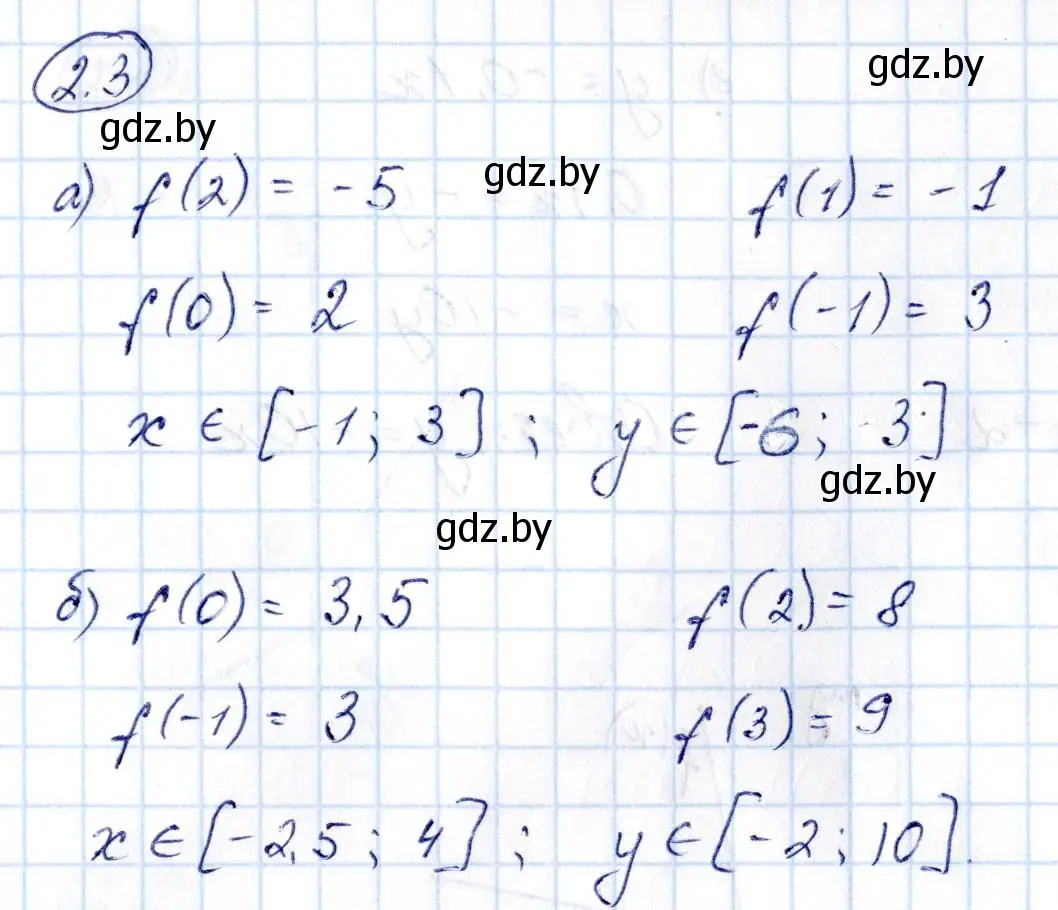 2.3
gdz.by
gdz.by
gdz.by
а) f(2) = -5 f(1) = -1
f(0) = 2 f(-1) = 3
x ∈ [-1; 3]; y ∈ [-6; 3]
gdz.by
gdz.by
б) f(0) = 3,5 f(2) = 8
f(-1) = 3 f(3) = 9
x ∈ [-2,5; 4]; y ∈ [-2; 10].